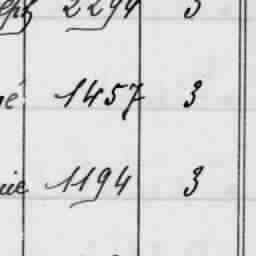 2294 3
1457 3
1194 3